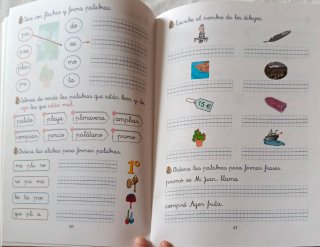 Une con flechas y forma palabras.
pri
pre
pla
pro
do
sa
mo
ta
Colorea de verde las palabras que están bien y de
rojo las que están mal.
palato
playa
plimavera
ampliar
comprar
precio
1º
primo
Ordena las sílabas para formar palabras.
me plu ro
ro pri me
que pli a
80
Escribe el nombre de los dibujos.
15 €
Ordena las palabras para formar frases.
primo se Mi Juan. llama
compré Ayer fruta.
81